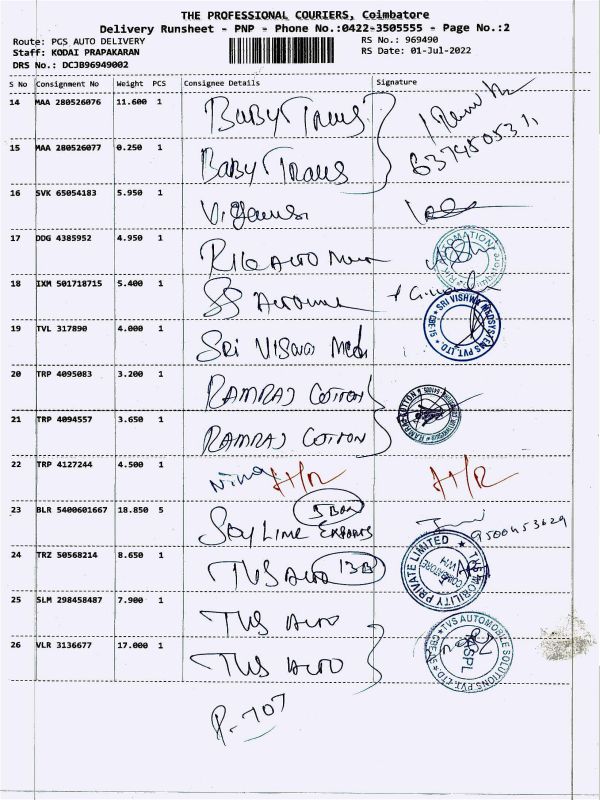 THE PROFESSIONAL COURIERS, Coimbatore
Delivery Runsheet - PNP - Phone No.:0422-3505555 - Page No.:2
Route: PGS AUTO DELIVERY RS No.: 969490
Staff: KODAI PRAPAKARAN RS Date: 01-Jul-2022
DRS No.: DCJB96949002
S No Consignment No Weight PCS Consignee Details Signature
14 MAA 280526076 11.600 1 BABY Trans
15 MAA 280526077 0.250 1 BABY Trans
6374505371
16 SVK 65054183 5.950 1
17 DDG 4385952 4.950 1 RIK AUTO
18 IXM 501718715 5.400 1 SS
SRI VISHWA MEDSYSTEMS PVT. LTD. CBE-15
19 TVL 317890 4.000 1 SRI VISWA Medi
20 TRP 4095083 3.200 1 RAMRAJ COTTON
RAMRAJ COTTON
21 TRP 4094557 3.650 1 RAMRAJ COTTON
22 TRP 4127244 4.500 1 Nina A/R A/R
23 BLR 5400601667 18.850 5 SKY LINE EXPORTS 5 Box
9500453629
24 TRZ 50568214 8.650 1 TVS AUTO 13B
TVS MOBILITY PRIVATE LIMITED COIMBATORE WH
25 SLM 298458487 7.900 1 TVS AUTO
26 VLR 3136677 17.000 1 TVS AUTO
TVS AUTOMOBILE SOLUTIONS PVT. LTD. CBE
P-707